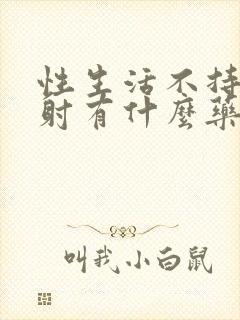 性生活不持
射有什麼藥
叫我小白鼠